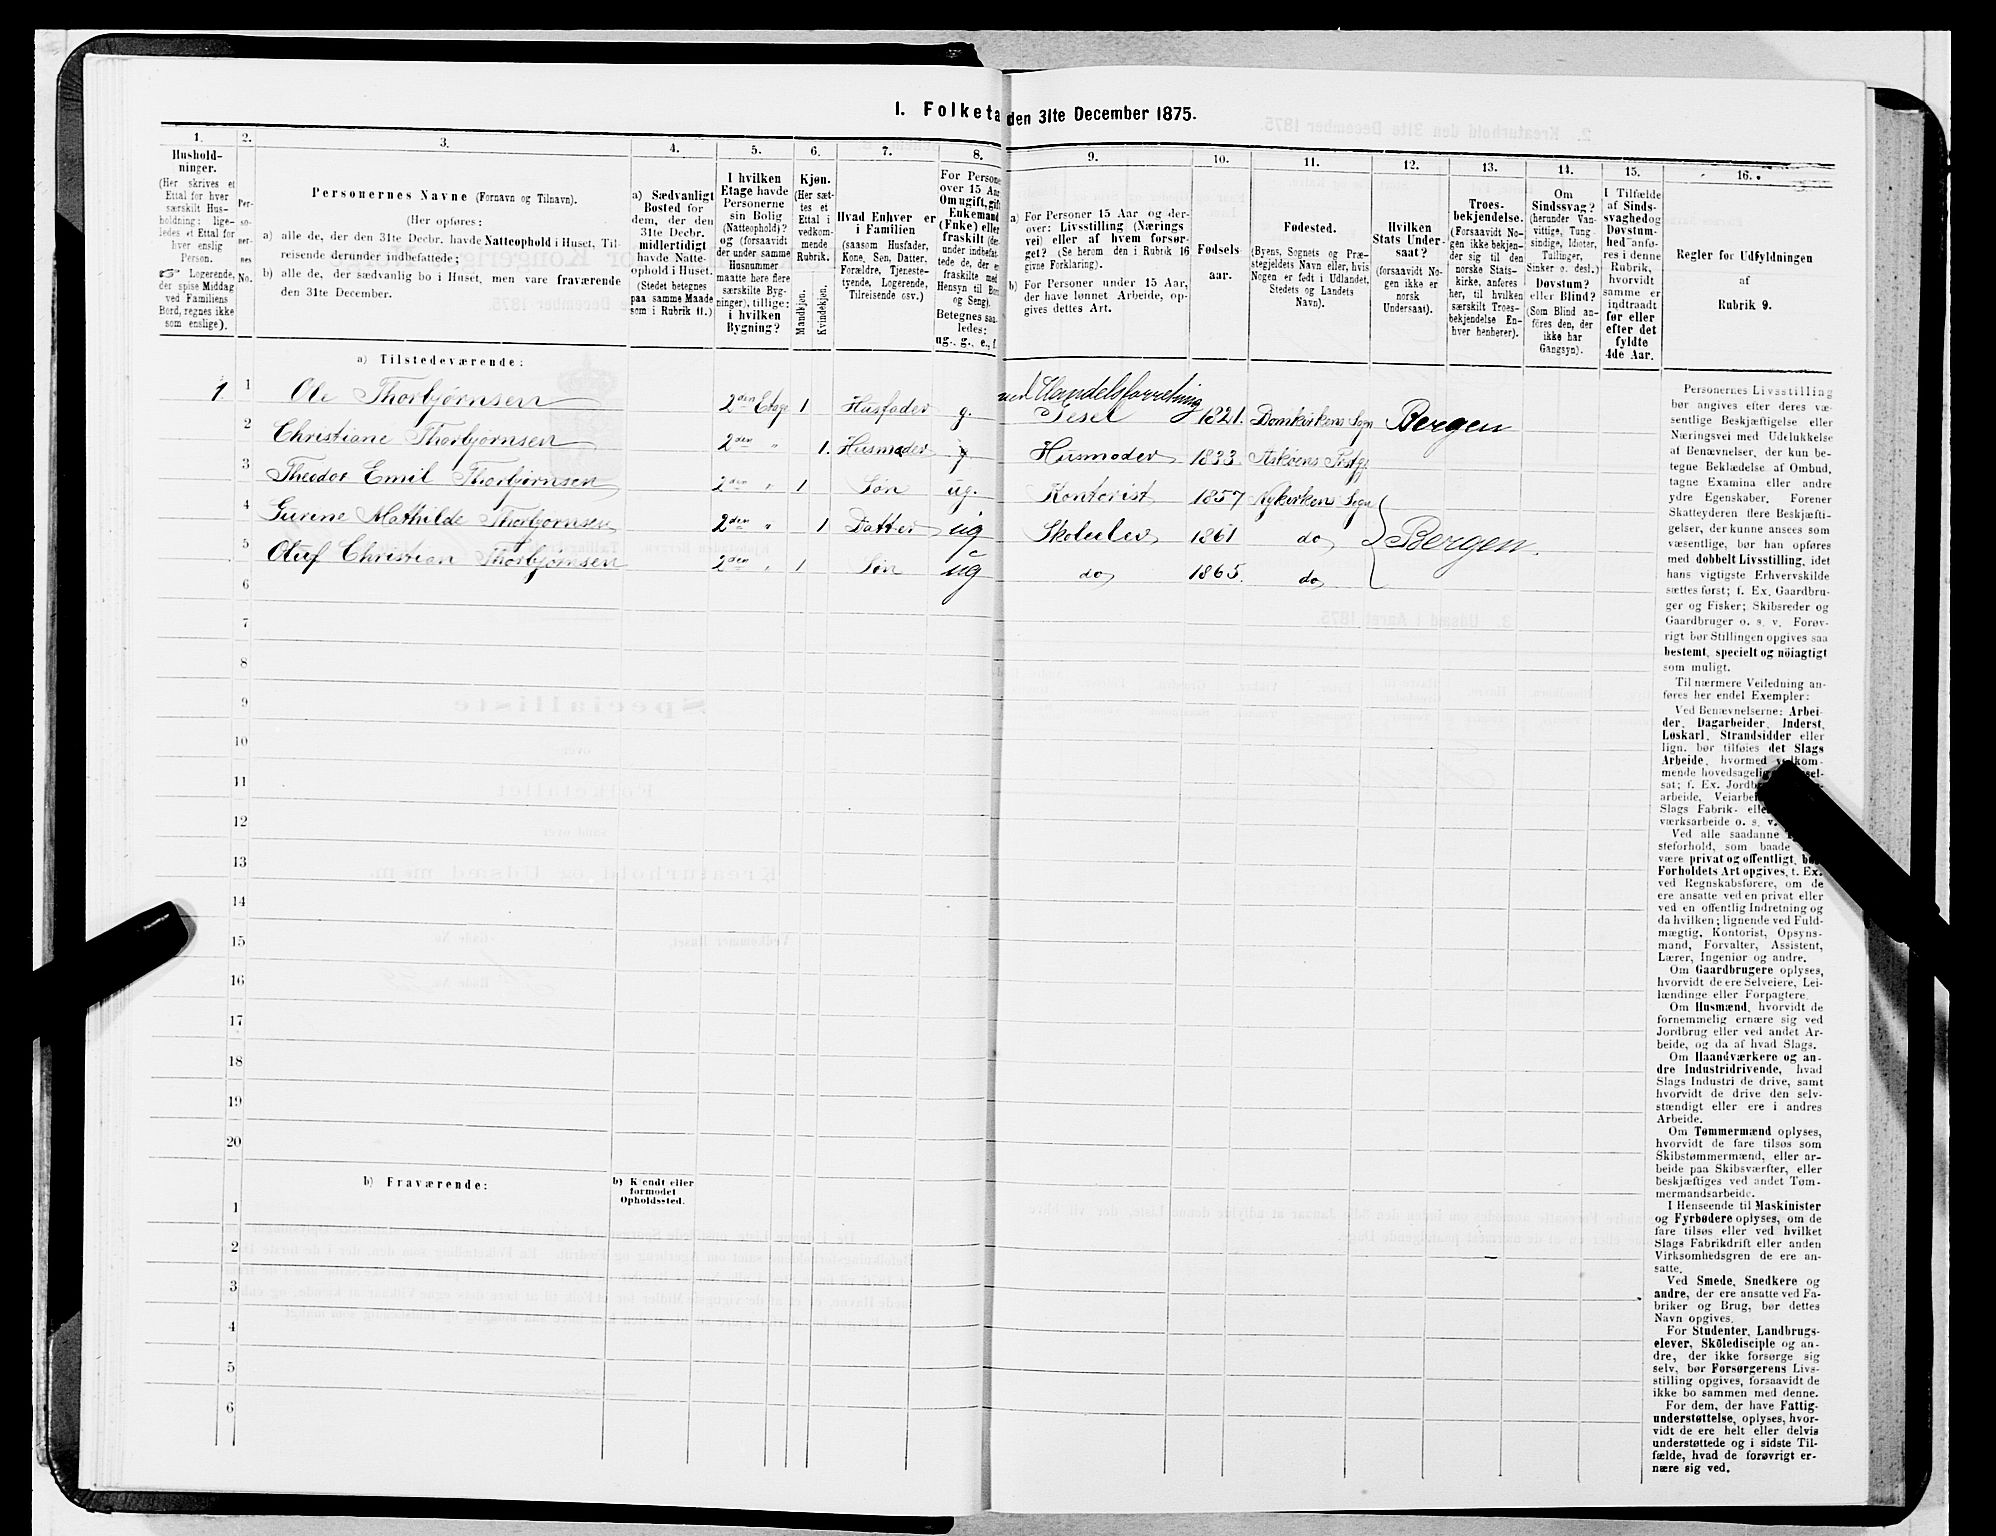 1. Folketa den 31te December 1875.
1. 2. 3. 4. 5. 6. 7. 8. 9. 10. 11. 12. 13. 14. 15. 16.
Hushold-
ninger.
(Her skrives et
Ettal for hver
særskilt Hus-
holdning; lige-
ledes et Ettal for
hver enslig
Person.
☞ Logerende,
der spise Middag
ved Familiens
Bord, regnes ikke
som enslige).
Per-
so-
ner-
nes
No.
Personernes Navne (Fornavn og Tilnavn).
(Her opføres:
a) alle de, der den 31te Decbr. havde Natteophold i Huset, Til-
reisende derunder indbefattede;
b) alle de, der sædvanlig bo i Huset, men vare fraværende
den 31te December.
a) Sædvanligt
Bosted for
dem, der den
31te Decbr.
midlertidigt
havde Natte-
ophold i Huset.
(Stedet betegnes
paa samme Maade
som i Rubrik 11.)
I hvilken
Etage havde
Personerne
sin Bolig
(Natteophold)?
og (forsaavidt
der under samme
Husnummer
maatte høre flere
særskilte Byg-
ninger), tillige:
i hvilken
Bygning?
Kjøn.
(Her sæt-
tes et
Ettal i
vedkom-
mende
Rubrik.
Mandkjøn.
Kvindekjøn.
Hvad Enhver er
i Familien
(saasom Husfader,
Kone, Søn, Datter,
Forældre, Tjeneste-
tyende, Logerende,
Tilreisende osv.)
For Persone
over 15 Aa
Om ugift, gift
Enkemand
(Enke) eller
fraskilt (de
under indbefat-
tede de, der e
fraskilte med
Hensyn til Bo
og Seng).
Betegnes saa
ledes:
ug., g., e., f.
a) For Personer 15 Aar og der-
over: Livsstilling (Nærings
vei) eller af hvem forsør-
get? (Se herom den i Rubrik 16
givne Forklaring).
b) For Personer under 15 Aar,
der have lønnet Arbeide, op-
gives dettes Art.
Fødsels-
aar.
Fødested.
(Byens, Sognets og Præ-
stegjeldets Navn eller, hvis
Nogen er født i Udlandet,
Stedets og Landets
Navn).
Hvilken
Stats Under-
saat?
(forsaavidt No-
gen ikke er
norsk
Undersaat).
Troes-
bekjendelse.
(Forsaavidt No-
gen ikke bekjen-
der sig til den
norske Stats-
kirke, anføres
her, til hvilken
særskilt Troes-
bekjendelse En-
hver henhører).
Om
Sindssvag?
(herunder Van-
vittige, Tung-
sindige, Idioter,
Tullinger,
Sinker o. desl.)
Døvstum?
eller Blind?
(Som Blind an-
føres den, der
ikke har
Gangsyn).
I Tilfælde
af Sinds-
svaghed og
Døvstum-
hed anfø-
res i denne
Rubrik,
hvorvidt
samme er
indtraadt
før eller
efter det
fyldte
4de Aar.
Regler for Udfyldningen
af
Rubrik 9.
a) Tilstedeværende:
1 1 Ole Thorbjørnsen 2den Etage 1 Husfader g. ved Handelsforretning 1821. Domkirkens Sogn Bergen
2 Christiane Thorbjørnsen 2den " 1. Husmoder g Husmoder 1833. Askøens Prstgj
3 Theodor Emil Thorbjørnsen 2den " 1 Søn ug. Kontorist 1857 Nykirkens Sogn
4 Gurine Mathilde Thorbjørnsen 2den " 1 Datter ug Skoleelev 1861 do Bergen.
5 Oluf Christian Thorbjørnsen 2den " 1 Søn ug do 1865. do
6
7
8
9
10
11
12
13
14
15
16
17
18
19
20
b) Fraværende: b) Kjendt eller
formodet
Opholdssted.
1
2
3
4
5
6
Personernes Livsstilling
bør angives efter deres væ-
sentlige Beskjæftigelse eller
Næringsvei med Udelukkelse
af Benævnelser, der kun be-
tegne Beklædelse af Ombud,
tagne Examina eller andre
ydre Egenskaber. Forener
Skatteyderen flere Beskjæfti-
gelser, der kunne ansees som
væsentlige, bør han opføres
med dobbelt Livsstilling, idet
hans vigtigste Erhvervskilde
sættes først; f. Ex. Gaardbru-
ger og Fisker; Skibsreder og
Gaardbruger o. s. v. Forøv-
rigt bør Stillingen opgives saa
bestemt, specielt og nöiagtigt
som muligt.
Til nærmere Veiledning an-
føres her endel Exempler:
Ved Benævnelserne: Arbei-
der, Dagarbeider, Inderst,
Løskarl, Strandsidder eller
lign. bør tilføies det Slags
Arbeide, hvormed vedkom-
mende hovedsagelig
sat; f. Ex.
arbeide,
Slags Fabrik-
værksarbeide o. s. v.
Ved alle saadanne
steforhold, som baade
være privat og offentligt, bør
Forholdets Art opgives, t. Ex.
ved Regnskabsførere, om de
ere ansatte ved en privat eller
ved en offentlig Indretning og
da hvilken; lignende ved Fuld-
mægtig, Kontorist, Opsyns-
mand, Forvalter, Assistent,
Lærer, Ingeniør og andre.
Om Gaardbrugere oplyses,
hvorvidt de ere Selveiere, Lei-
lændinge eller Forpagtere.
Om Husmænd, hvorvidt de
fornemmelig ernære sig ved
Jordbrug eller ved andet Ar-
beide, og da af hvad Slags.
Om Haandværkere og an-
dre Industridrivende, hvad
Slags Industri de drive, samt
hvorvidt de drive den selv-
stændigt eller ere i andres
Arbeide.
Om Tømmermænd oplyses,
hvorvidt de fare tilsøs som
Skibstømmermænd, eller ar-
beide paa Skibsværfter, eller
beskjæftiges ved andet Tøm-
mermandsarbeide.
I Henseende til Maskinister
og Fyrbødere oplyses, om de
fare tilsøs eller ved hvilket
Slags Fabrikdrift eller anden
Virksomhedsgren de ere an-
satte.
Ved Smede, Snedkere og
andre, der ere ansatte ved Fa-
briker og Brug, bør dettes
Navn opgives.
For Studenter, Landbrugs-
elever, Skoledisciple og an-
dre, der ikke forsørge sig
selv, bør Forsørgerens Livs-
stilling opgives, forsaavidt de
ikke bo sammen med denne.
For dem, der have Fattig-
understøttelse, oplyses, hvor-
vidt de ere helt eller delvis
understøttede og i sidste Til-
fælde, hvad de forøvrigt er-
nære sig ved.